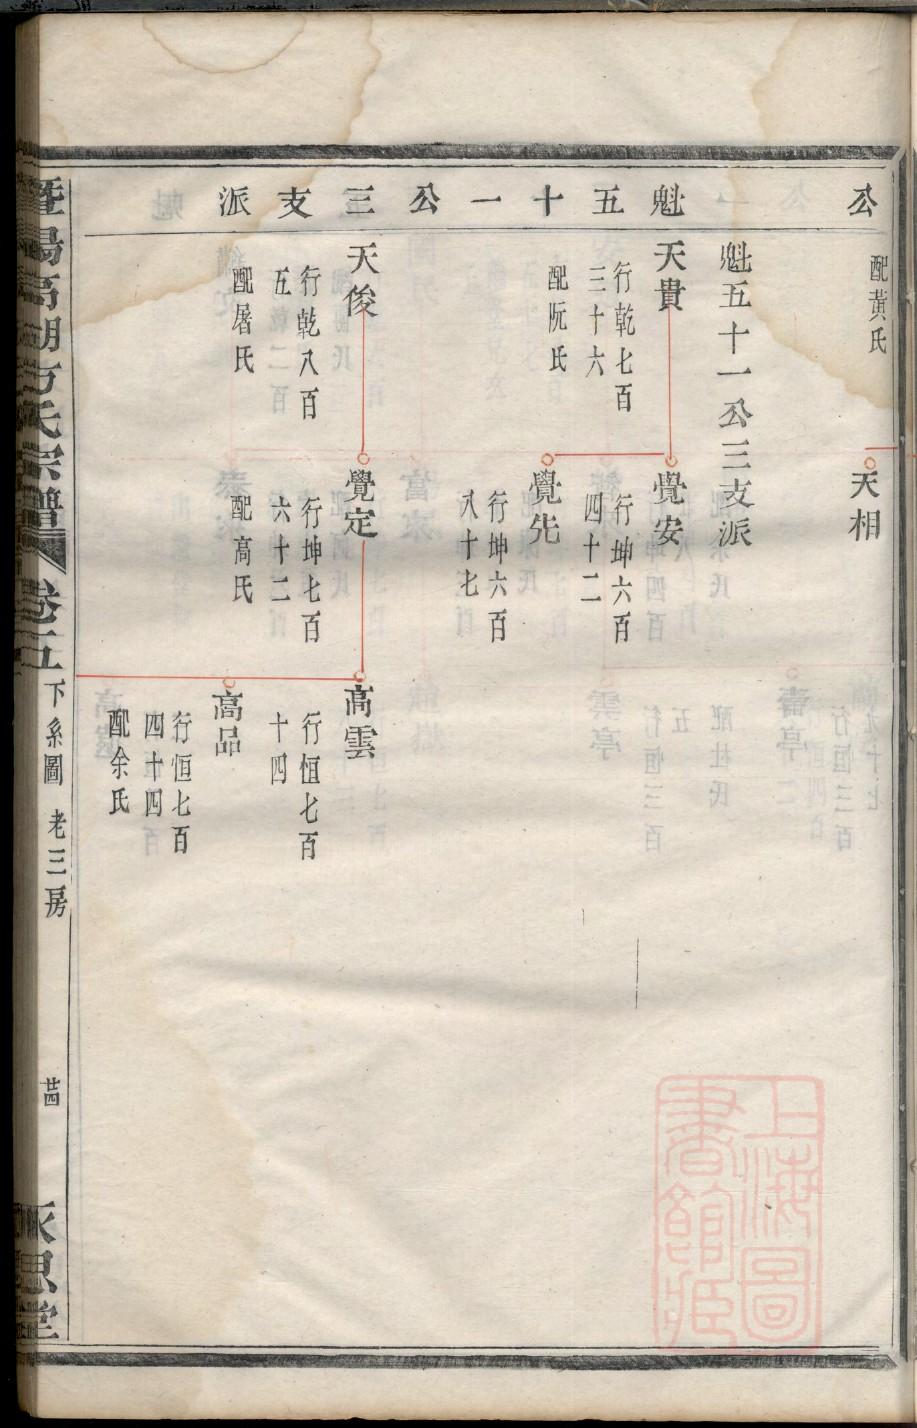 公
魁五十一公三支派
配黃氏
天相
魁五十一公三支派
天貴
行乾七百
三十六
配阮氏
覺安
行坤六百
四十二
覺先
行坤六百
八十七
天俊
行乾八百
五
配屠氏
覺定
行坤七百
六十二
配高氏
高雲
行恒七百
十四
高品
行恒七百
四十四
配余氏
暨陽高湖方氏宗譜
卷五
下系圖
老三房
廿四
永思堂
上海圖
書館藏